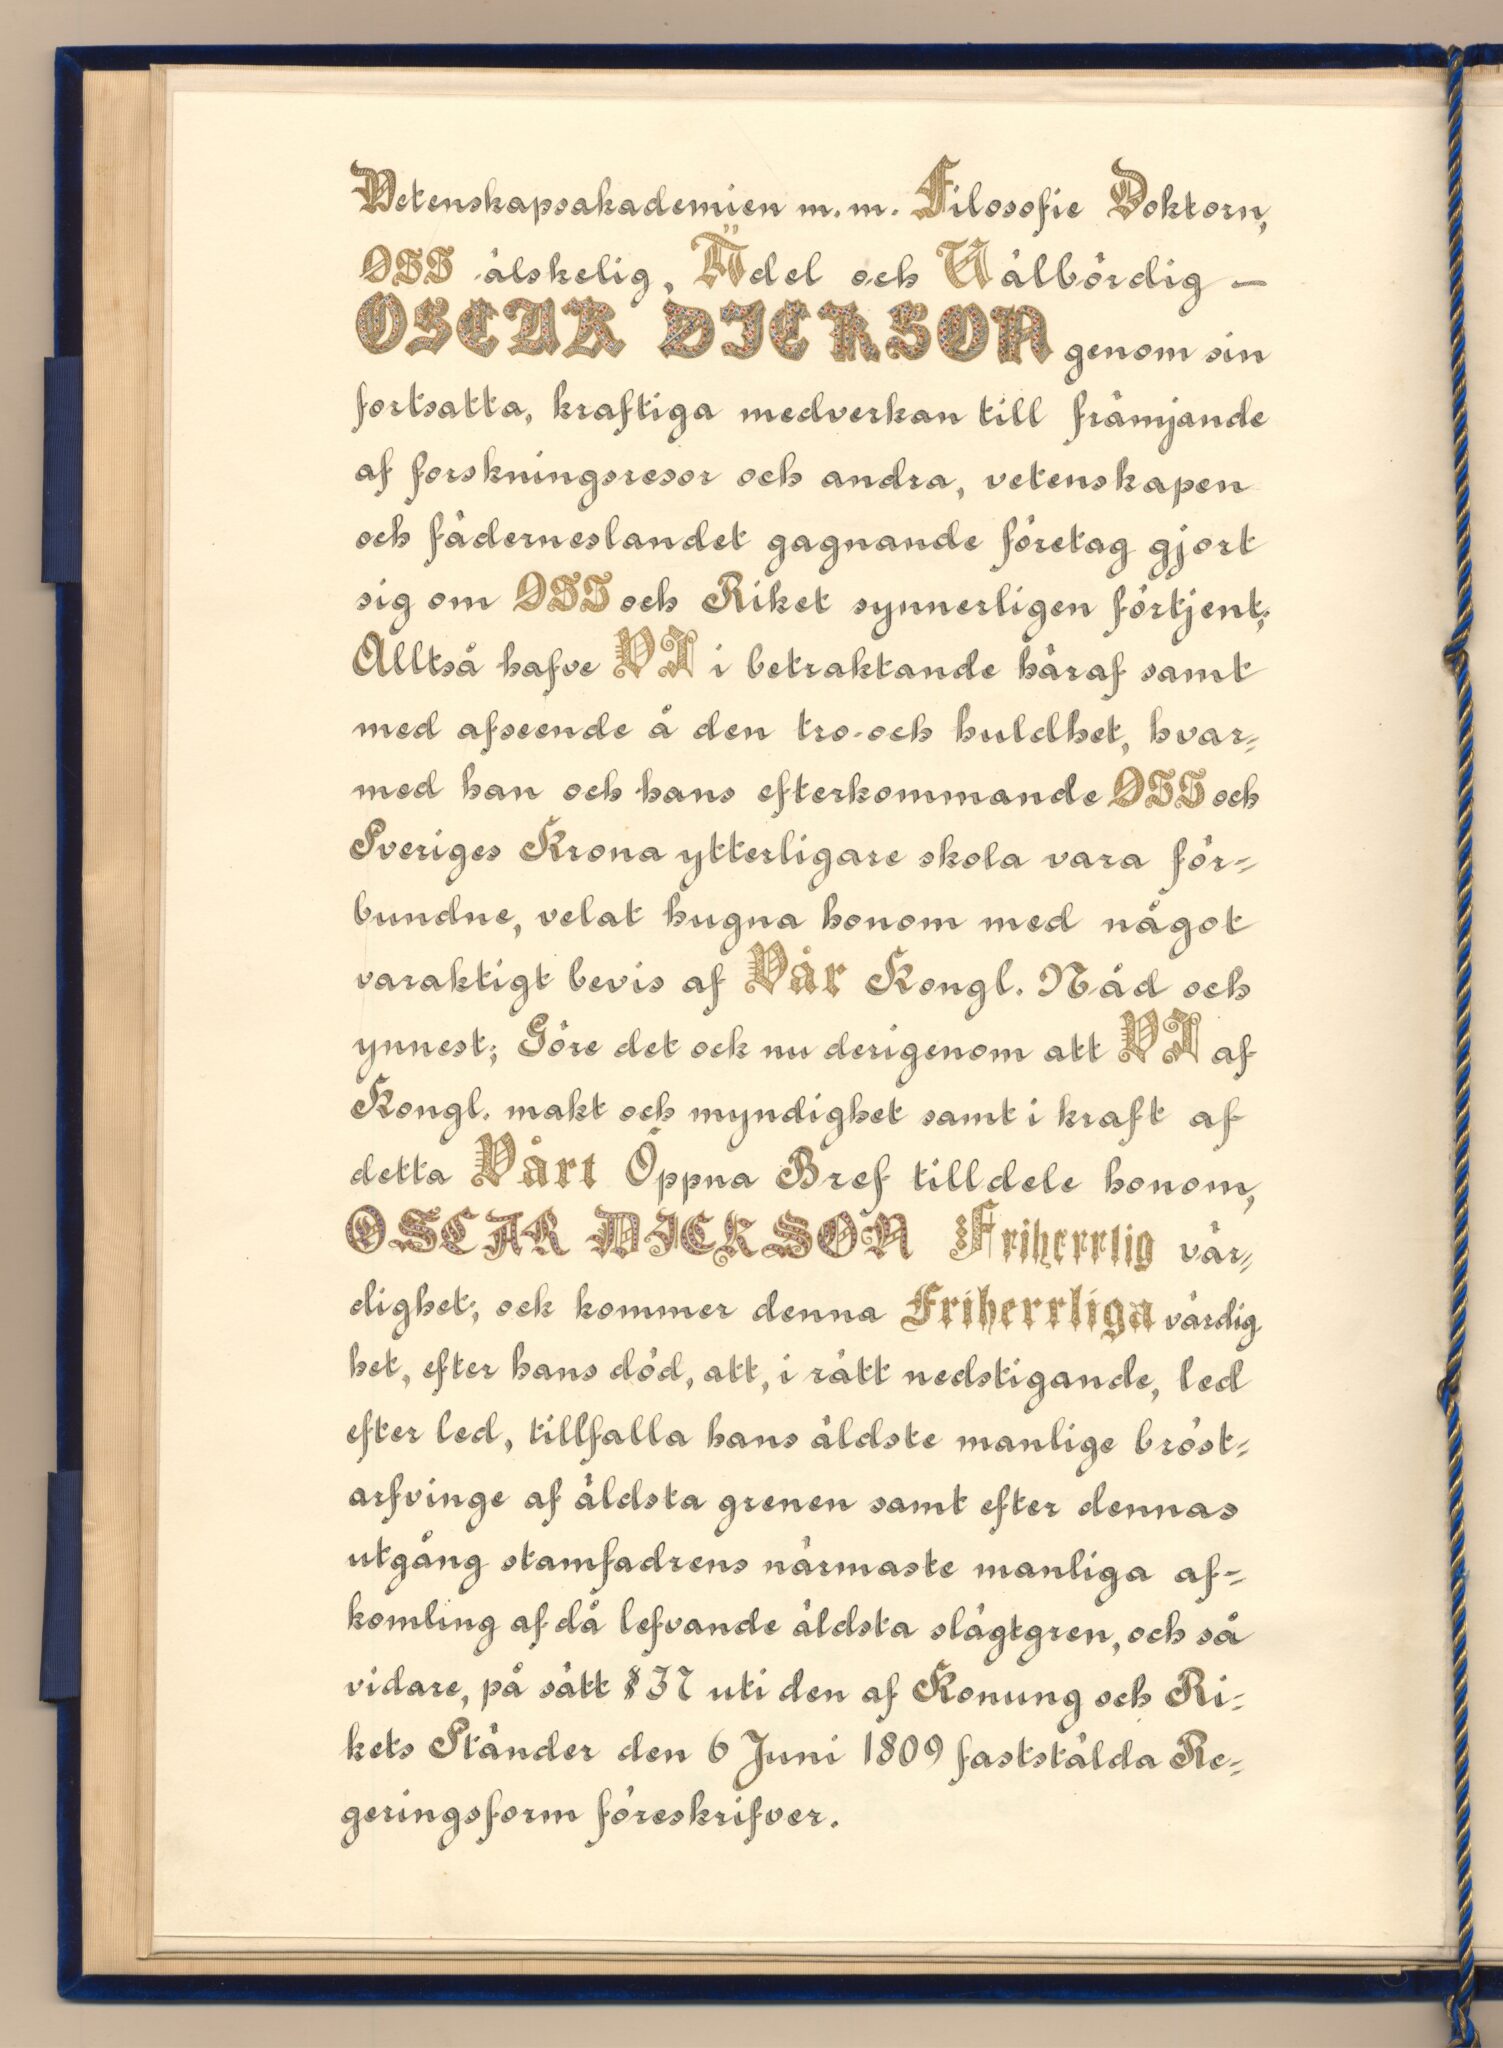 Vetenskapsakademien m.m. Filosofie Doktorn,
OSS älskelig, Ädel och Välbördig —
OSCAR DICKSON genom sin
fortsatta, kraftiga medverkan till främjande
af forskningsresor och andra, vetenskapen
och fäderneslandet gagnande företag gjort
sig om OSS och Riket synnerligen förtjent;
Alltså hafve VI i betraktande häraf samt
med afseende å den tro- och huldhet, hvar-
med han och hans efterkommande OSS och
Sveriges Krona ytterligare skola vara för-
bundne, velat hugna honom med något
varaktigt bevis af Vår Kongl. Nåd och
ynnest; Göre det ock nu derigenom att VI af
Kongl. makt och myndighet samt i kraft af
detta Vårt Öppna Bref tilldele honom,
OSCAR DICKSON Friherrlig vär-
dighet; ock kommer denna Friherrliga värdig
het, efter hans död, att, i rätt nedstigande, led
efter led, tillfalla hans äldste manlige bröst-
arfvinge af äldsta grenen samt efter dennas
utgång stamfadrens närmaste manliga af-
komling af då lefvande äldsta slägtgren, och så
vidare, på sätt § 37 uti den af Konung och Ri-
kets Ständer den 6 Juni 1809 fastställda Re-
geringsform föreskrifver.